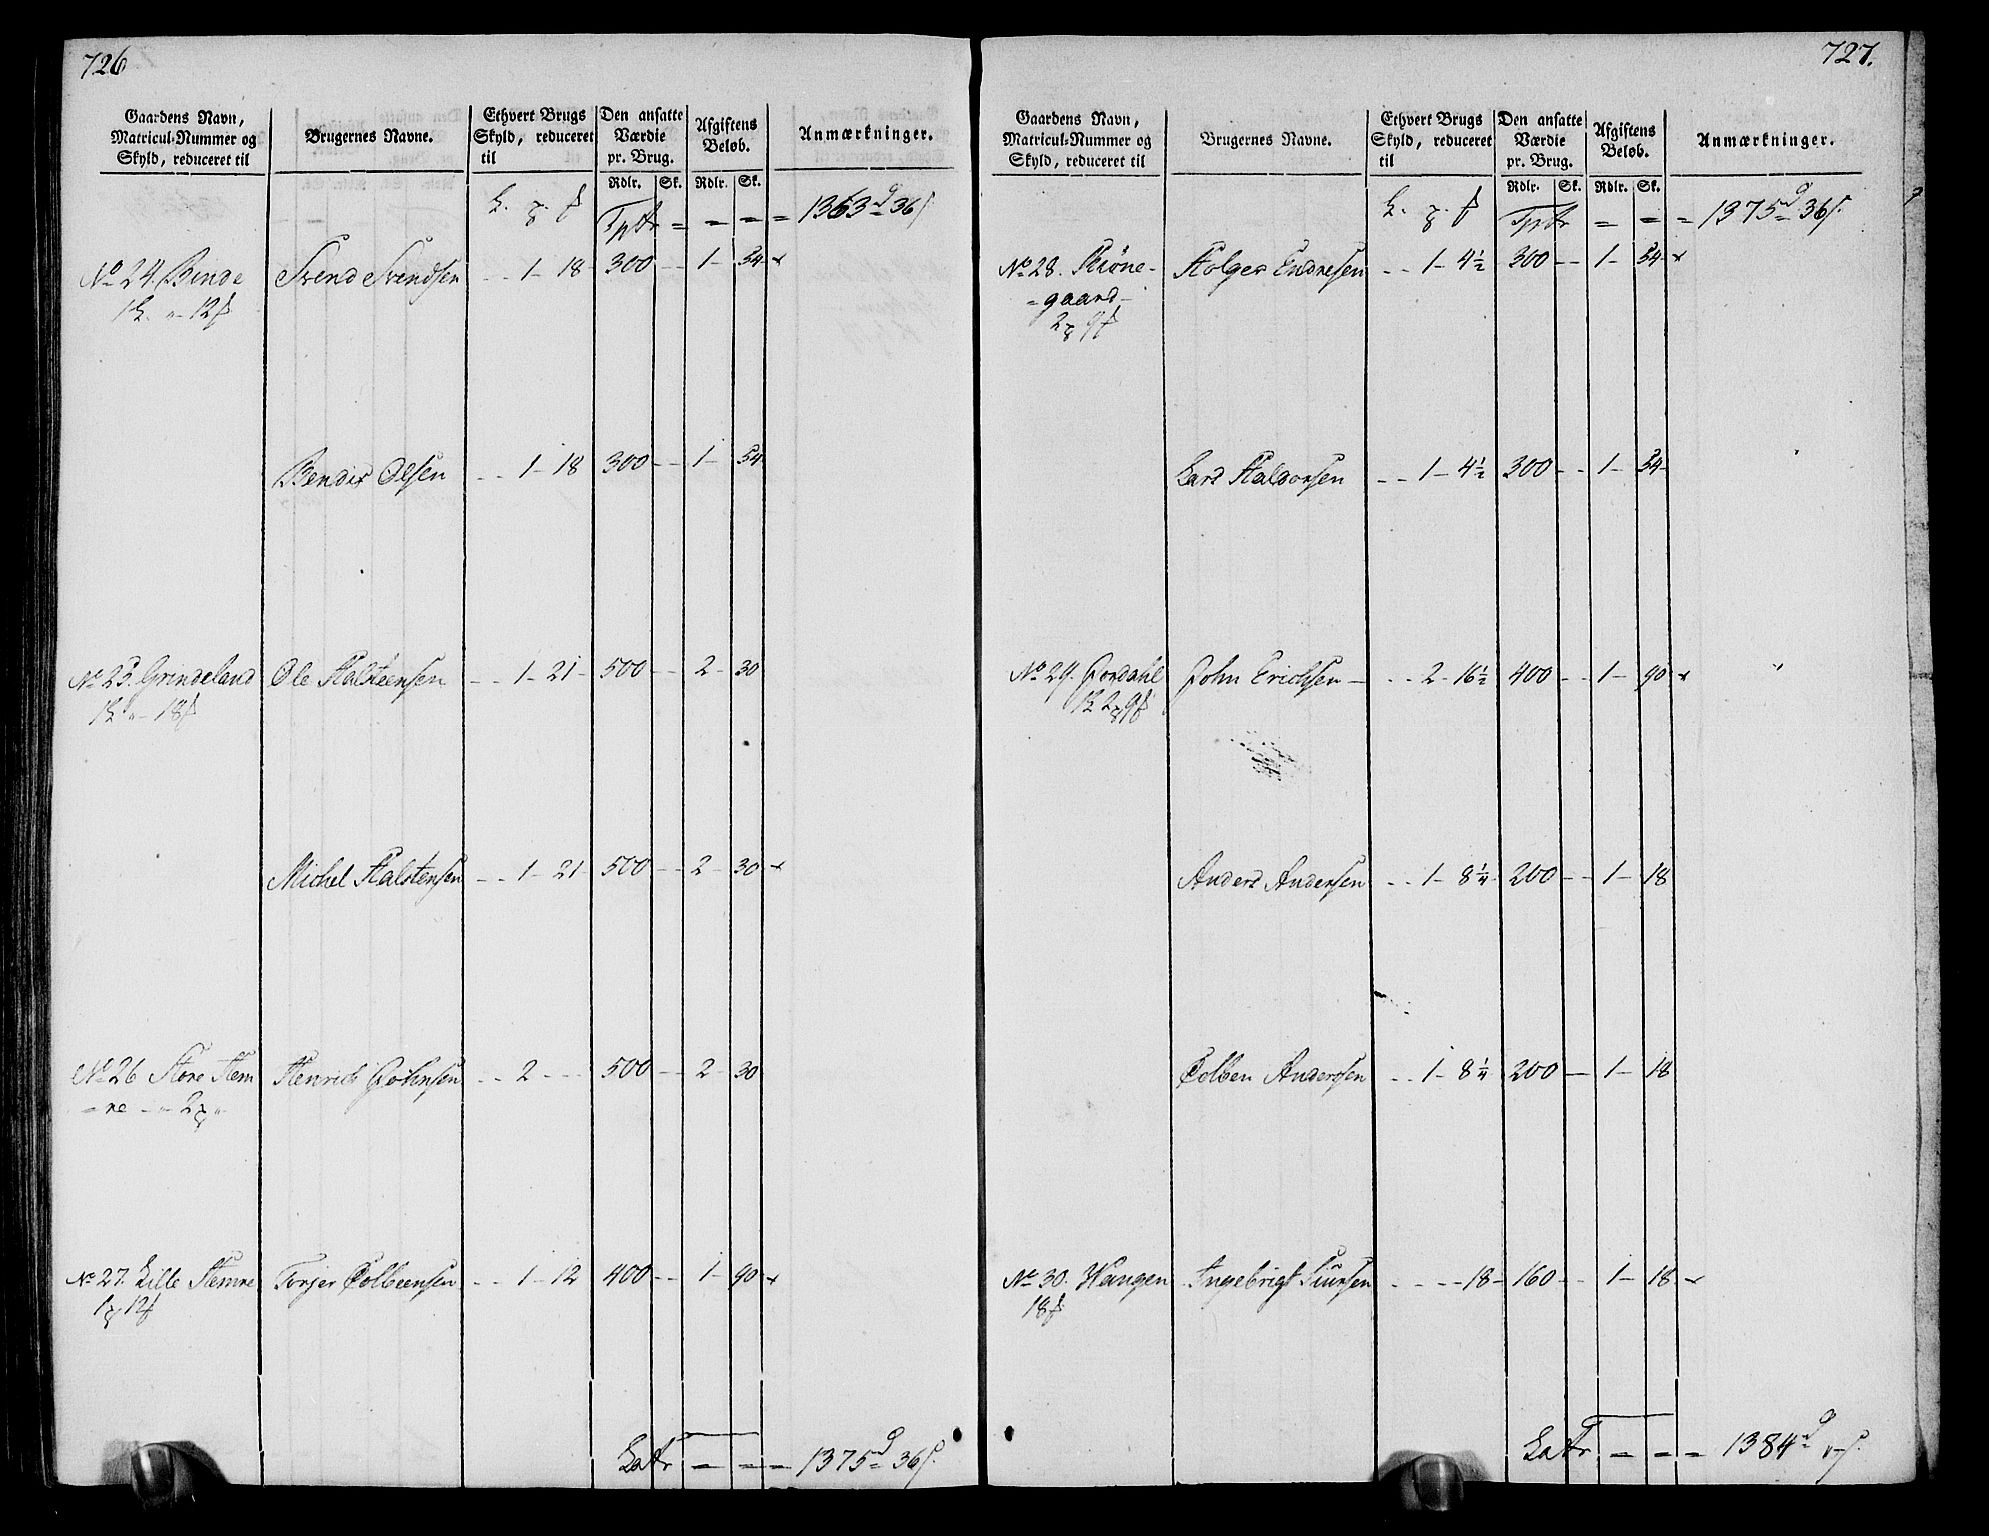 726
Gaardens Navn, Matricul-Nummer og Skyld, reduceret til
Brugernes Navne.
Ethvert Brugs Skyld, reduceret til
Den ansatte Værdie pr. Brug.
Afgiftens Beløb.
Anmærkninger.
Rdlr. Sk. Rdlr. Sk.
Tptr = = = = 1363 d 36 s.
No 24. Binde Svend Svendsen - - 1 - 18 - 300 - - 1 - 54
12 f
Bendix Olsen - - 1 - 18 300 - - 1 - 54
No 25. Grindeland Ole Halsteensen - - 1 - 21 - 500 - - 2 - 30
18 f
Michel Halstensen - - 1 - 21 - 500 - - 2 - 30
No 26 Store Hem Henrich Johnsen - - 2 - - - 500 - - 2 - 30
= re - " 2
No 27. Lille Hemre Torjer Colbeensen - - 1 - 12 400 - - 1 - 90
1 12 f
Latr = = = 1375 d 36 s.
727.
Gaardens Navn, Matricul-Nummer og Skyld, reduceret til
Brugernes Navne.
Ethvert Brugs Skyld, reduceret til
Den ansatte Værdie pr. Brug.
Afgiftens Beløb.
Anmærkninger.
Rdlr. Sk. Rdlr. Sk.
Tptr = = = 1375 d 36 s.
No 28. Holger Endresen - - 1 - 4½ 300 - - 1 - 54
= gaard
2 9 f
Lars Haldorsen - - 1 - 4½ 300 - - 1 - 54
No 29. Jordahl John Erichsen - - - 2 - 16½ 400 - - 1 - 90
2 9 f
Anders Andersen - - 1 - 8¼ 200 - - 1 - 18
Colben Anderssen - - 1 - 8¼ 200 - 1 - 18
No 30. Wangen Ingebrigt Siursen - - - - 18 - 160 - - 1 - 18
18 f
Latr = = = 1384 d " s.